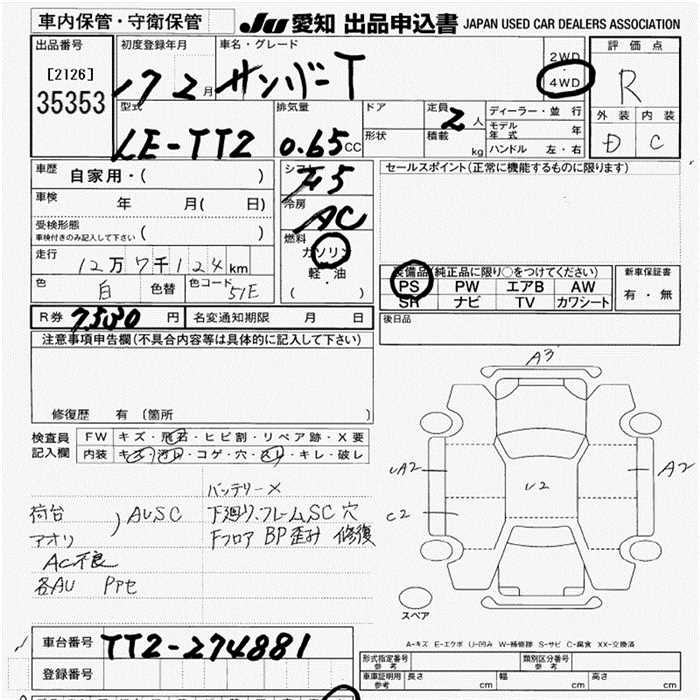 車内保管・守衛保管 JU 愛知 出品申込書 JAPAN USED CAR DEALERS ASSOCIATION
出品番号 初度登録年月 車名・グレード 2WD・4WD 評価点
[2126] 17 2月 サンバーT R
35353
型式 排気量 ドア 定員 2人 ディーラー・並行 外装 内装
LE-TT2 0.65cc 形状 積載 kg モデル年式 年 D C
ハンドル 左・右
車歴 自家用・( ) シフト F5 セールスポイント(正常に機能するものに限ります)
車検 年 月( 日) 冷房 AC
受検形態 ( )
車検付きのみ記入して下さい
燃料 ガソリン
走行 12万7千124km 軽油 装備品(純正品に限り○をつけてください) 新車保証書
色 白 色替 色コード 51E ( ) PS PW エアB AW 有・無
SR ナビ TV カワシート
R券 7,530円 名変通知期限 月 日 後日品
注意事項申告欄(不具合内容等は具体的に記入して下さい)
修復歴 有 〔箇所 〕
検査員 FW キズ・飛石・ヒビ割・リペア跡・X要
記入欄 内装 キズ・汚れ・コゲ・穴・スレ・キレ・破し
A3
UA2 U2 A2
C2
バッテリー×
荷台 )AUSC 下廻り.フレームSC 穴
アオリ Fフロア BP歪み 修復
AC不良
各AU PPセ
スペア
車台番号 TT2-274881
A-キズ E-エクボ U-凹み W-補修跡 S-サビ C-腐食 XX-交換済
登録番号
形式指定番号 参考 類別区分番号 参考
車庫証明用 参考 長さ cm 幅 cm 高さ cm